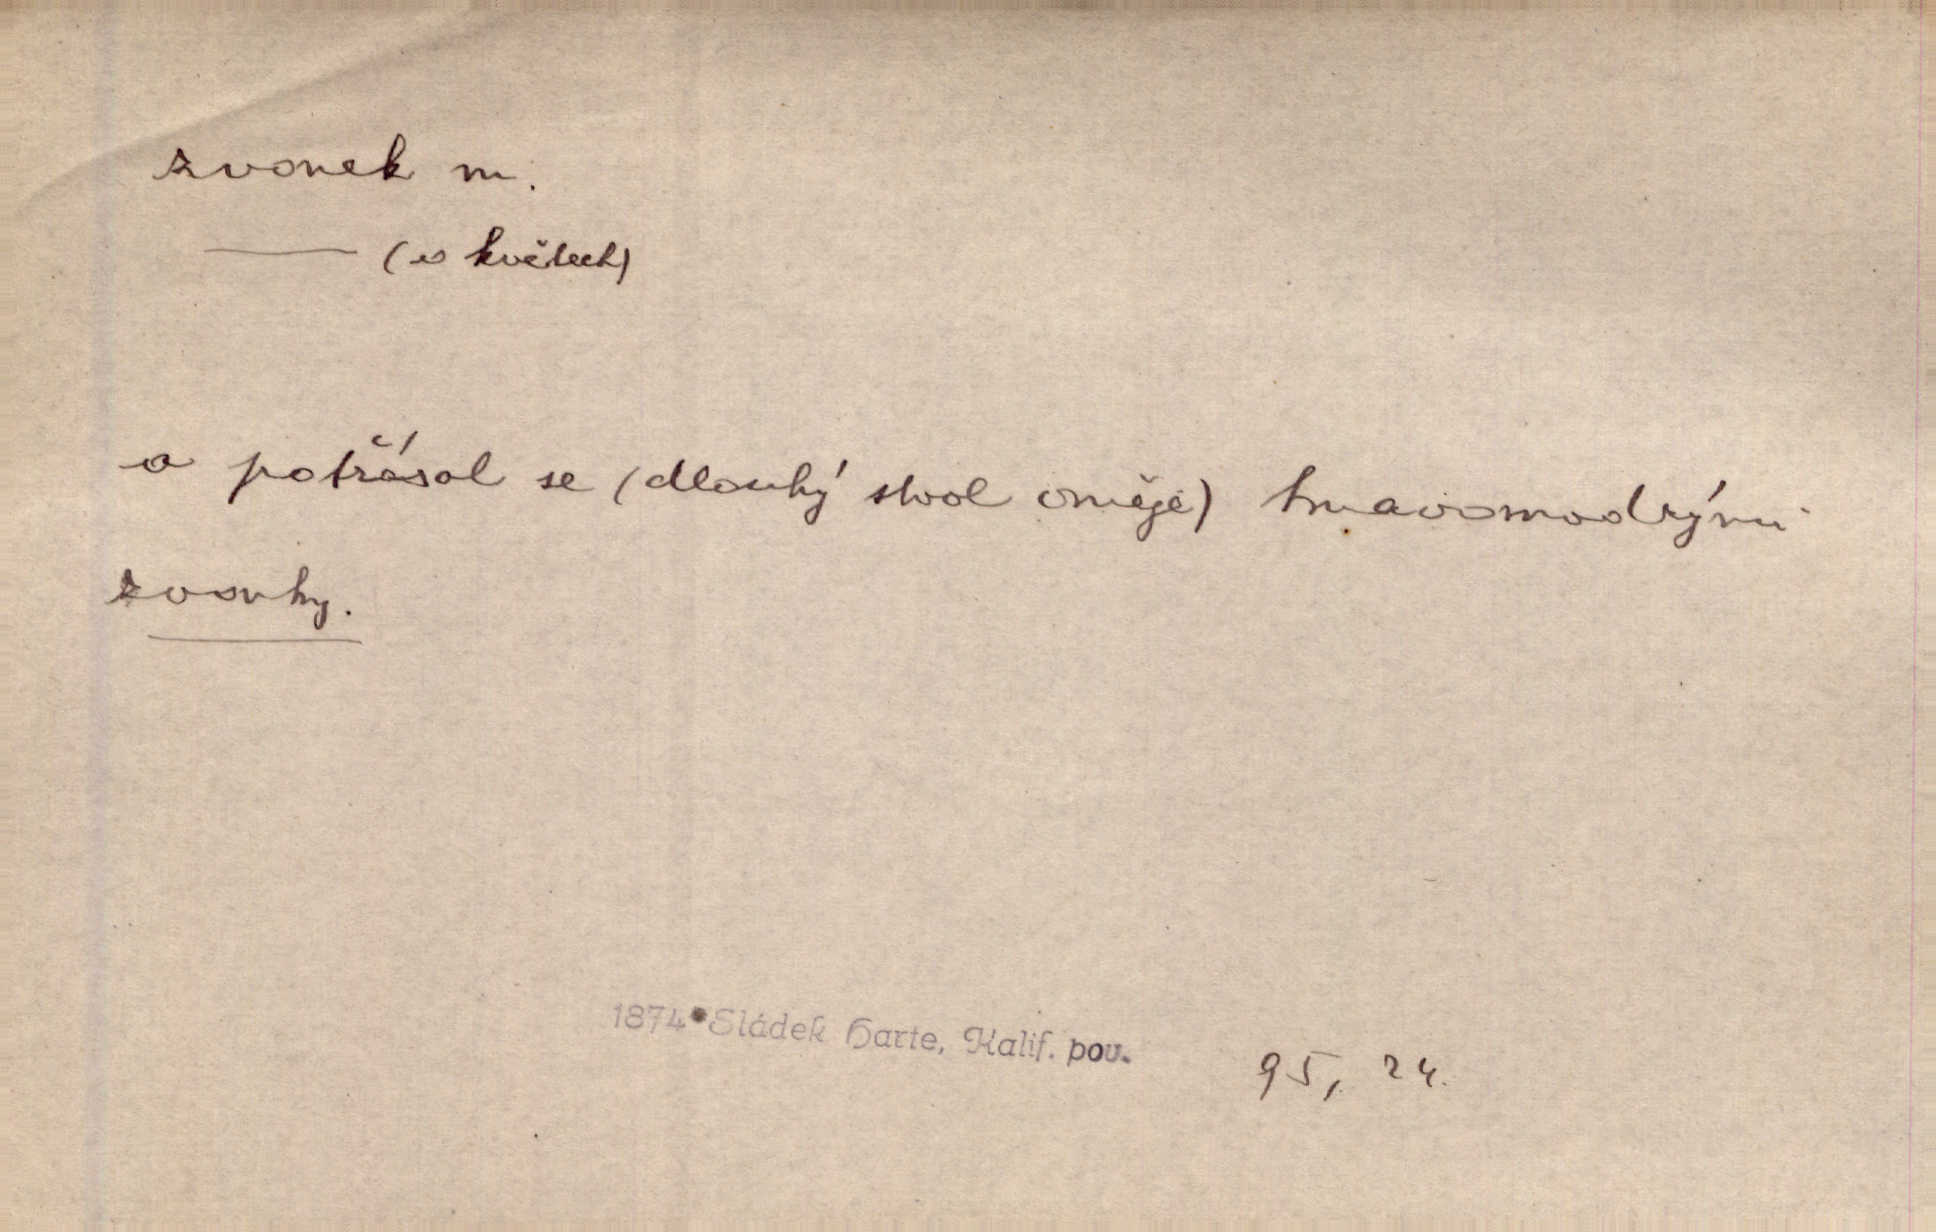 zvonek m.
— (o květech)
a potřásal se (dlouhý stvol oměje) tmavomodrými
zvonky.
1874 Sládek Harte, Kalif. pov.
95, 24.